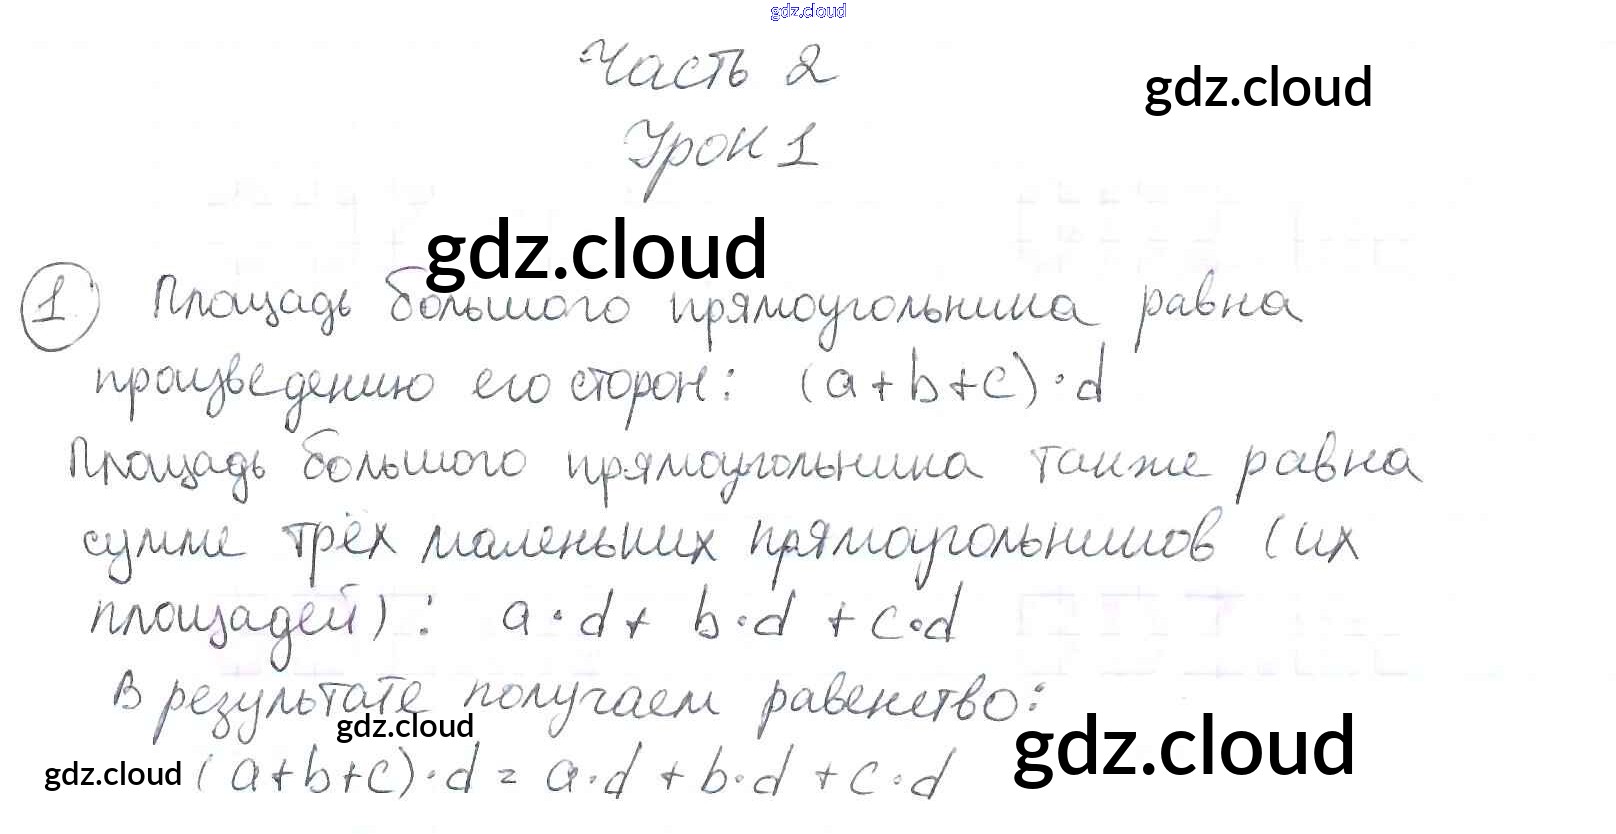 gdz.cloud
Часть 2
gdz.cloud
Урок 1
gdz.cloud
1 Площадь большого прямоугольника равна
произведению его сторон: (a+b+c)·d
Площадь большого прямоугольника также равна
сумме трёх маленьких прямоугольников (их
площадей): a·d+ b·d + c·d
В результате получаем равенство:
gdz.cloud
gdz.cloud
gdz.cloud
(a+b+c)·d = a·d + b·d + c·d